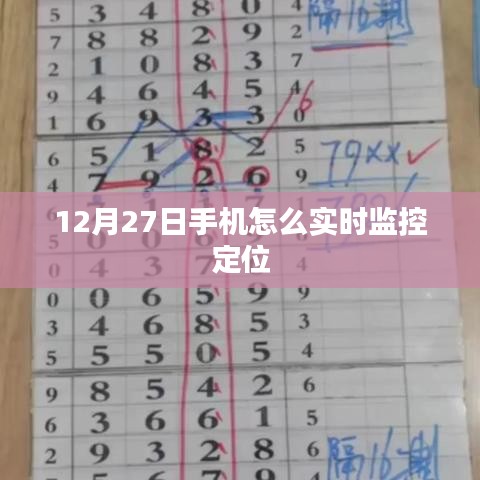 5 3 4 8 0 4 隔16期
7 8 8 2 9 2
2 1 0 8 3 7
9 4 6 4 5 4 6
1 6 9 3 3 0
6 5 1 8 2 5 79××✓
4 7 9 2 6 9
12月27日手机怎么实时监控
定位
0 4 3 7
0 0 6 5 9 9
3 4 6 8 5 3
5 5 5 0 5 4
9 8 5 4 2 6
6 3 6 6 1 5
2 9 3 2 8 6 隔16期
5 6 7 9